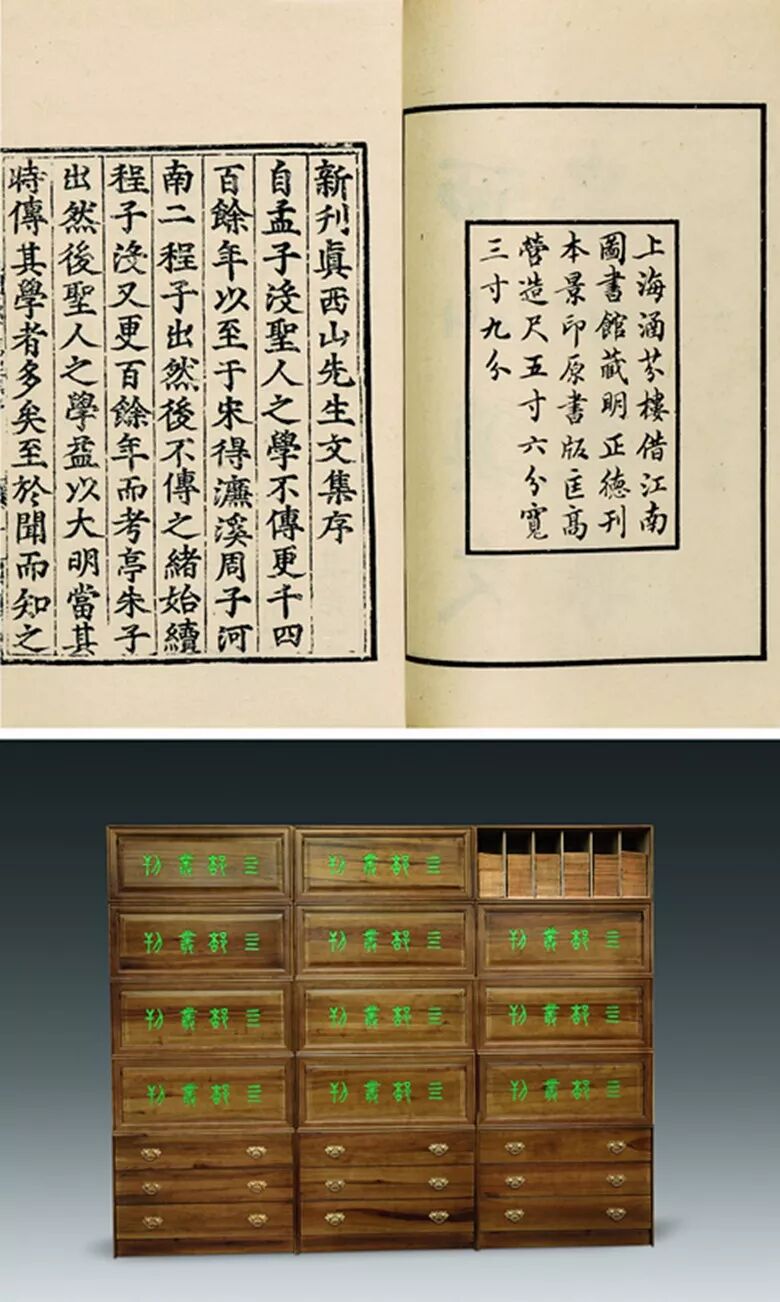 上海涵芬樓借江南
圖書館藏明正德刊
本景印原書版匡高
營造尺五寸六分寬
三寸九分
新刋眞西山先生文集序
自孟子沒聖人之學不傳更千四
百餘年以至于宋得濂溪周子河
南二程子出然後不傳之緒始續
程子沒又更百餘年而考亭朱子
出然後聖人之學益以大明當其
時傳其學者多矣至於聞而知之
亖部叢刊
亖部叢刊
亖部叢刊
亖部叢刊
亖部叢刊
亖部叢刊
亖部叢刊
亖部叢刊
亖部叢刊
亖部叢刊
亖部叢刊